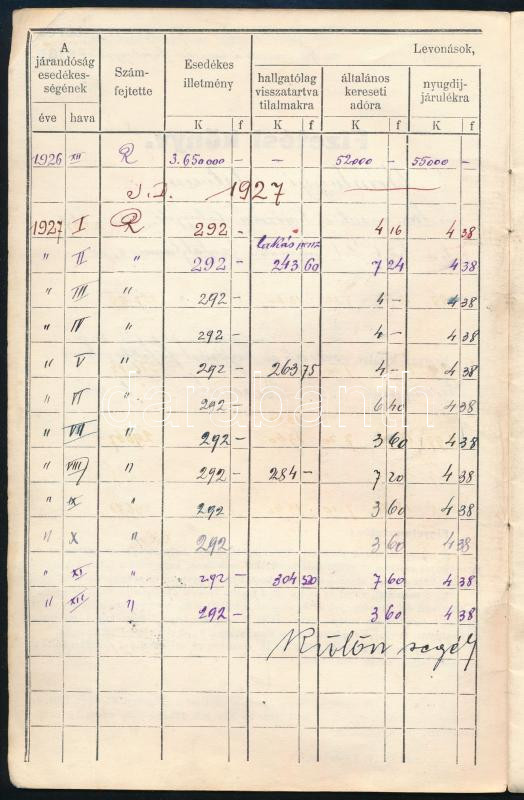 A járandóság esedékes- ségének
Szám- fejtette
Esedékes illetmény
Levonások,
hallgatólag visszatartva tilalmakra
általános kereseti adóra
nyugdíj- járulékra
éve hava K f K f K f K f
1926 XII R 3.650000 – – 52000 – 55000 –
1927
1927 I R 292 – 4 16 4 38
lakás
" II " 292 – 243 60 7 24 4 38
" III " 292 – 4 – 4 38
" IV " 292 – 4 – 4 38
" V " 292 – 263 75 4 – 4 38
" VI " 292 – 6 40 4 38
" VII " 292 – 3 60 4 38
" VIII " 292 – 284 – 7 20 4 38
" IX " 292 3 60 4 38
" X " 292 3 60 4 38
" XI " 292 – 304 520 7 60 4 38
" XII " 292 – 3 60 4 38
Külön segély
darabanth